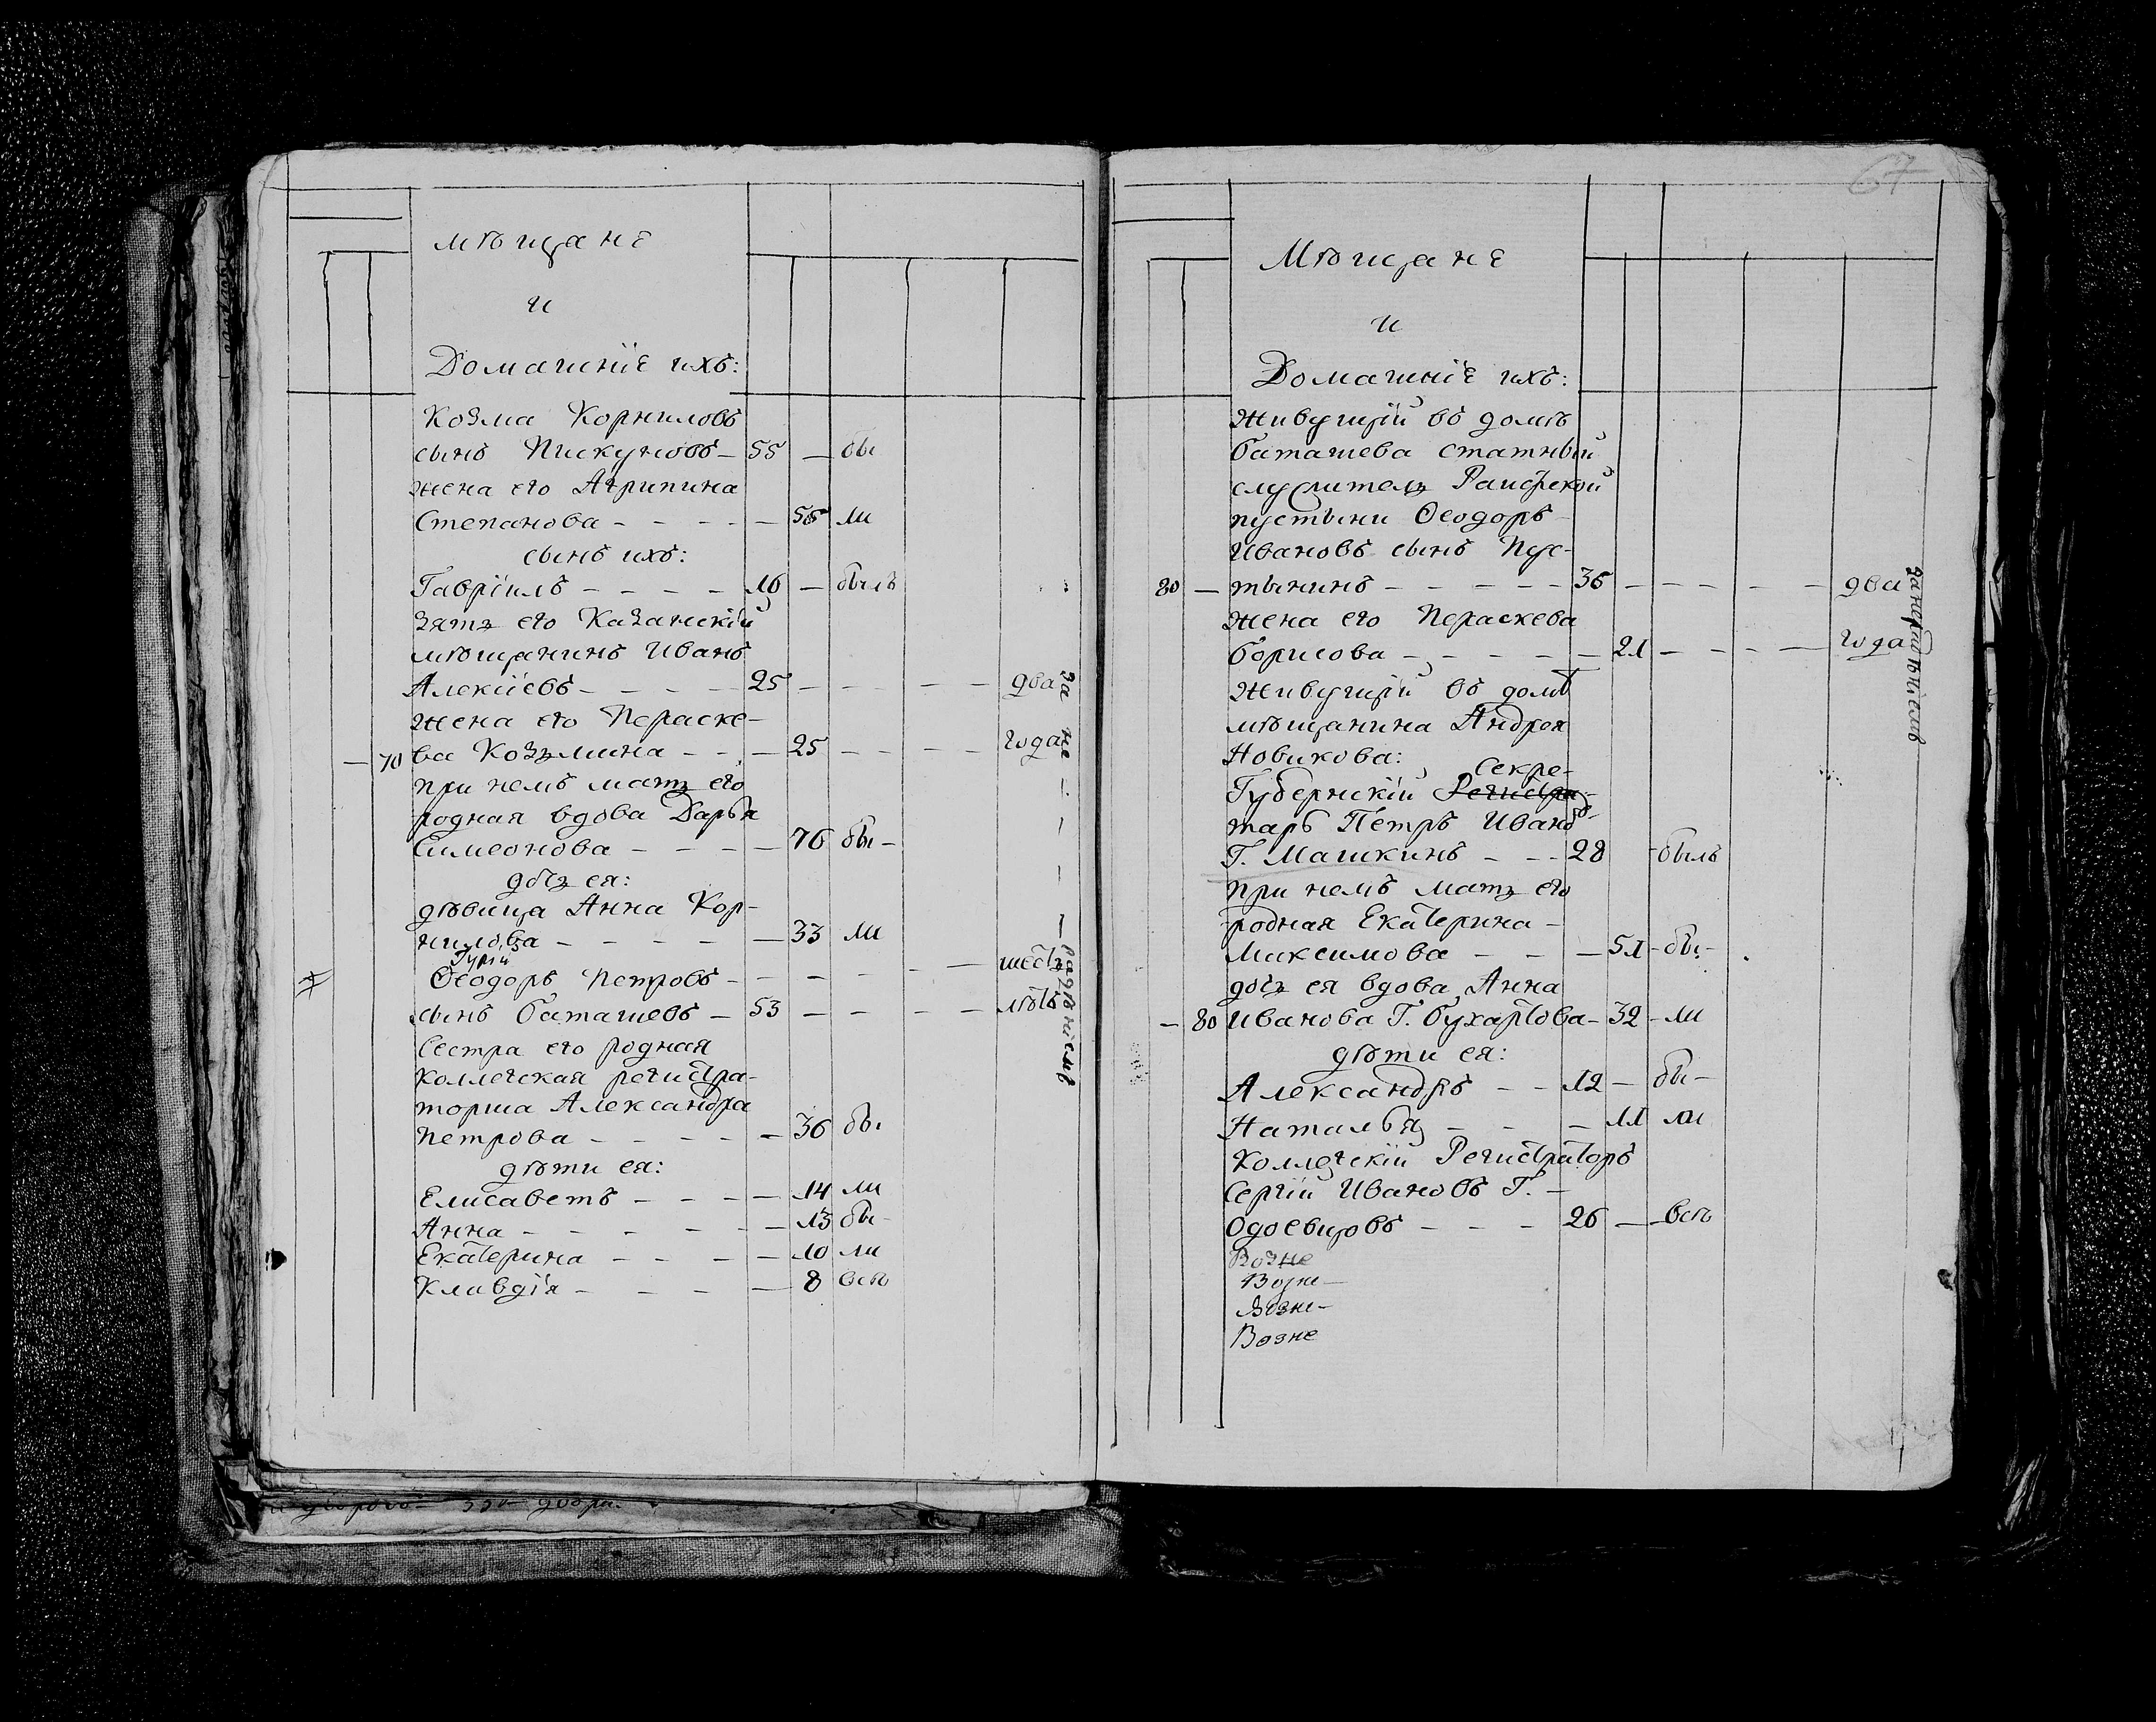 мѣщане
и
Домашніе ихъ:
Козма Корниловъ
сынъ Пискуновъ – 55 – бы
жена его Агрипина
Степанова – – – – – 55 ли
сынъ ихъ:
Гавріилъ – – – – 16 – былъ
зять его Казанскій
мѣщанинъ Иванъ
Алексіевъ – – – – 25 – – – – – два
жена его Пераске-
– 70 ва Козьмина – – – 25 – – – – года
за не – – – – радѣніемъ
при немъ мать его
родная вдова Дарья
Симеонова – – – – 76 бы –
дочь ея:
дѣвица Анна Кор-
нилова – – – – – 33 ли
Гурій
Ѳеодоръ Петровъ – – – – – – – шесть
сынъ Баташевъ – 53 – – – – лѣтъ
Сестра его родная
Коллегская регистра-
торша Александра
Петрова – – – – – 36 бы
дѣти ея:
Елисаветъ – – – – 14 ли
Анна – – – – – – 13 бы –
Екатерина – – – – 10 ли
Клавдія – – – – – 8 всѣ
67
Мѣщане
и
Домашніе ихъ:
Живущій въ домѣ
Баташева статный
служитель Раифской
пустыни Ѳеодоръ
Ивановъ сынъ Пус-
80 – тынинъ – – – – – 36 – – – – – два
жена его Пераскева
Борисова – – – – – 21 – – – – года
за нерадѣніемъ
Живущій въ домѣ
мѣщанина Андрея
Новикова:
Секре-
Губернскій Регистра-
тарь Петръ Иванов
Г. Машкинъ – – – 28 – былъ
при немъ мать его
родная Екатерина –
Максимова – – – 51 – бы –
дочь ея вдова Анна
– 80 Иванова Г. Бухартова – 32 – ли
дѣти ея:
Александръ – – 12 – бы –
Наталья – – – 11 ли
Коллегскій Регистраторъ
Сергій Ивановъ Г. –
Одоевцовъ – – – 26 – – всѣ
Возне
Возне –
Возне –
Возне